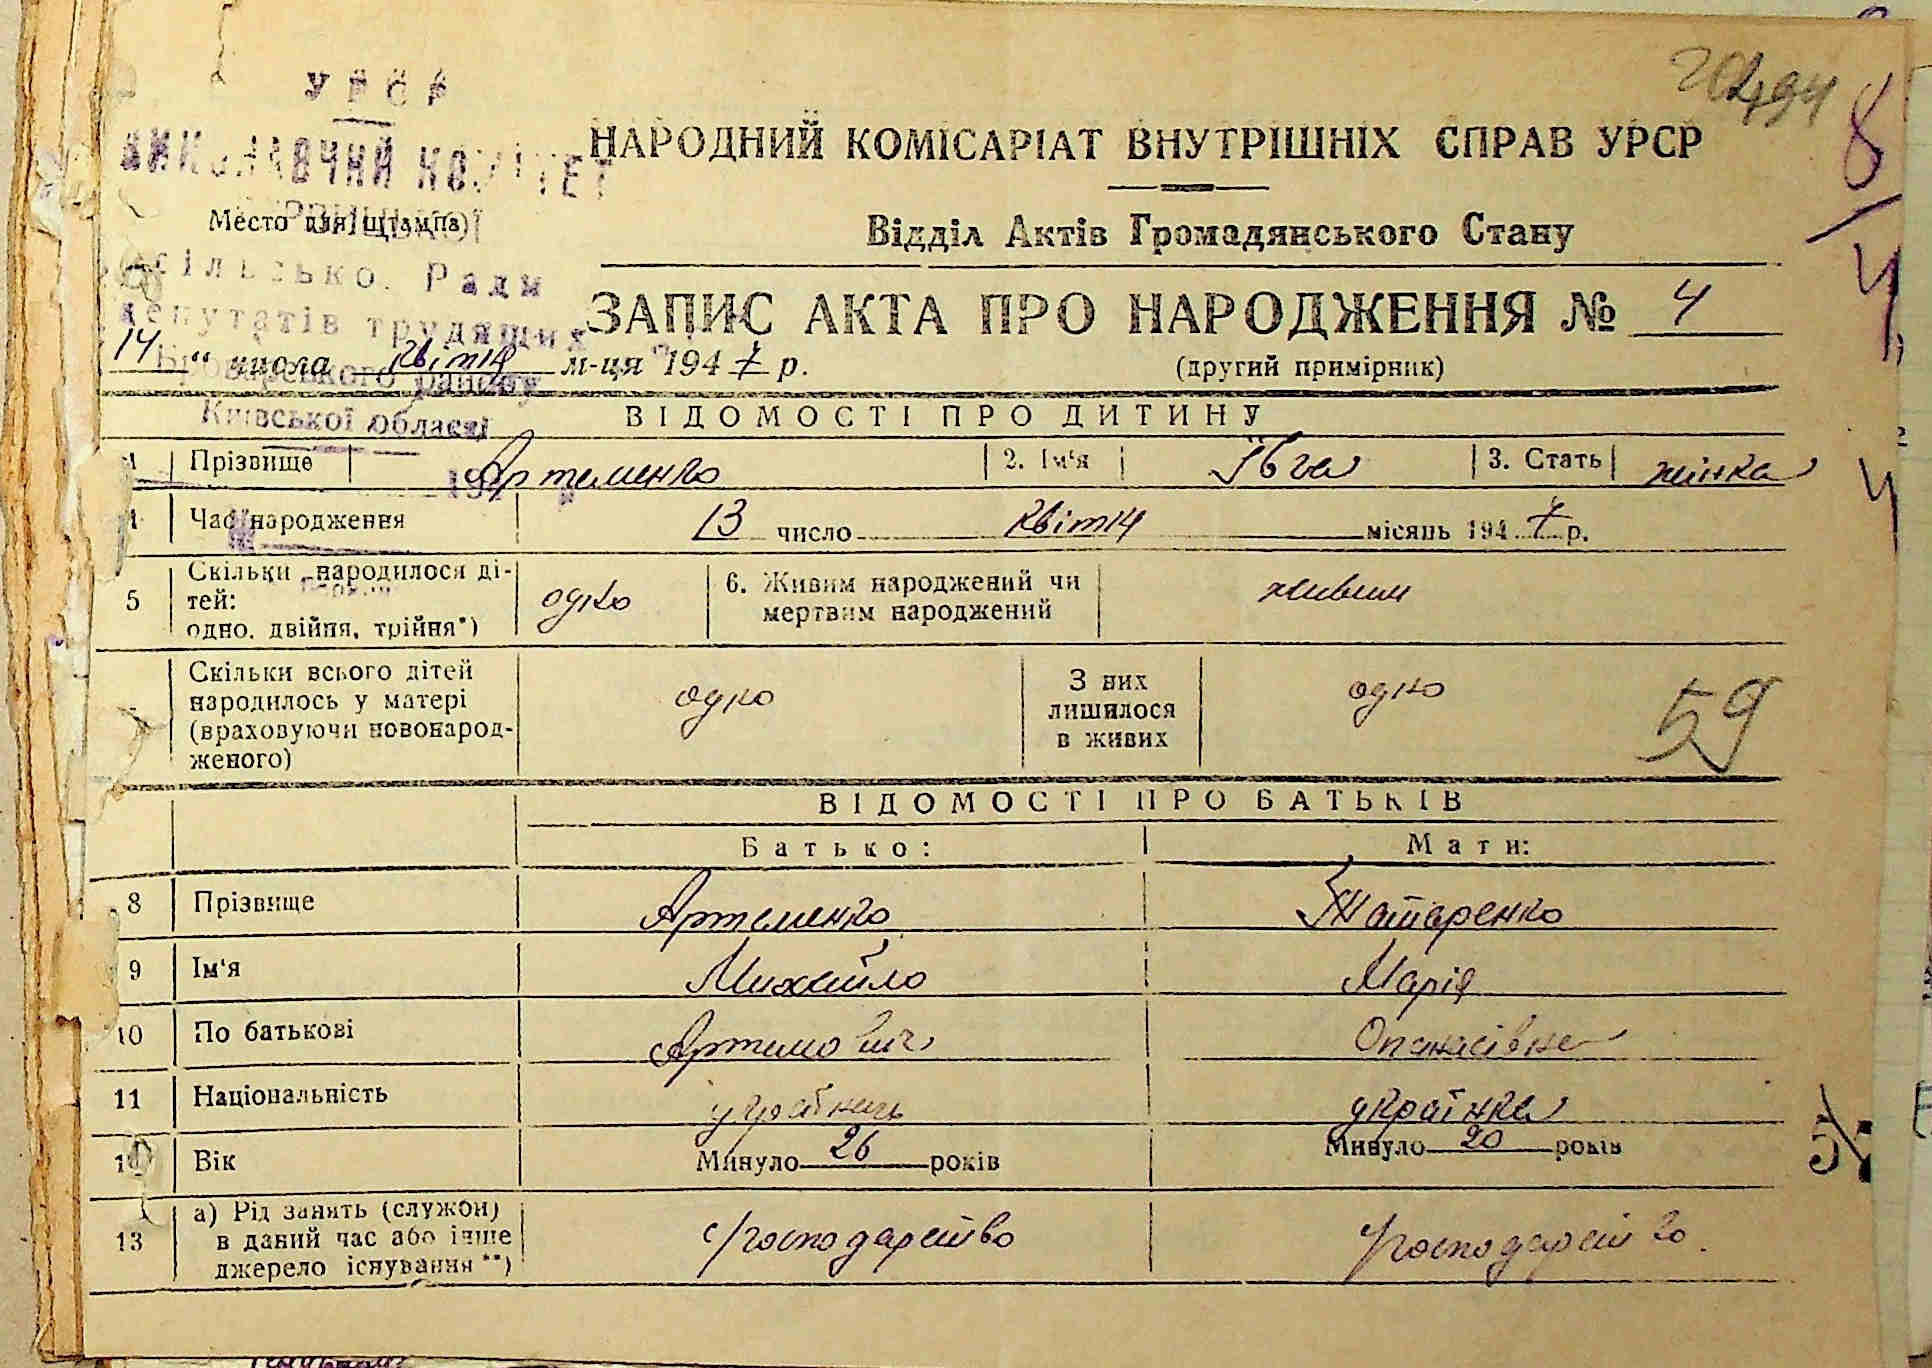 УРСР
ВИКОНАВЧИЙ КОМІТЕТ
НАРОДНИЙ КОМІСАРІАТ ВНУТРІШНІХ СПРАВ УРСР
20494
8/4
Место для штампа
Відділ Актів Громадянського Стану
сільської Ради
депутатів трудящих
ЗАПИС АКТА ПРО НАРОДЖЕННЯ № 4
(другий примірник)
14 “ числа квітня м-ця 1947 р.
Броварського району
Київської області
ВІДОМОСТІ ПРО ДИТИНУ
Прізвище Артеменко 2. Ім‘я Ївга 3. Стать жінка
Час народження 13 число квітня місяць 1947 р.
5 Скільки народилося ді-
тей:
одно, двійня, трійня*) одно 6. Живим народжений чи
мертвим народжений живим
Скільки всього дітей
народилось у матері
(враховуючи новонарод-
женого) одно З них
лишилося
в живих одно
59
ВІДОМОСТІ ПРО БАТЬКІВ
Батько: Мати:
8 Прізвище Артеменко Татаренко
9 Ім‘я Михайло Марія
10 По батькові Артемович Опанасівна
11 Національність українець українка
Вік Минуло 26 років Минуло 20 років
13 а) Рід занять (служби)
в даний час або інше
джерело існування**) господарство господарство.